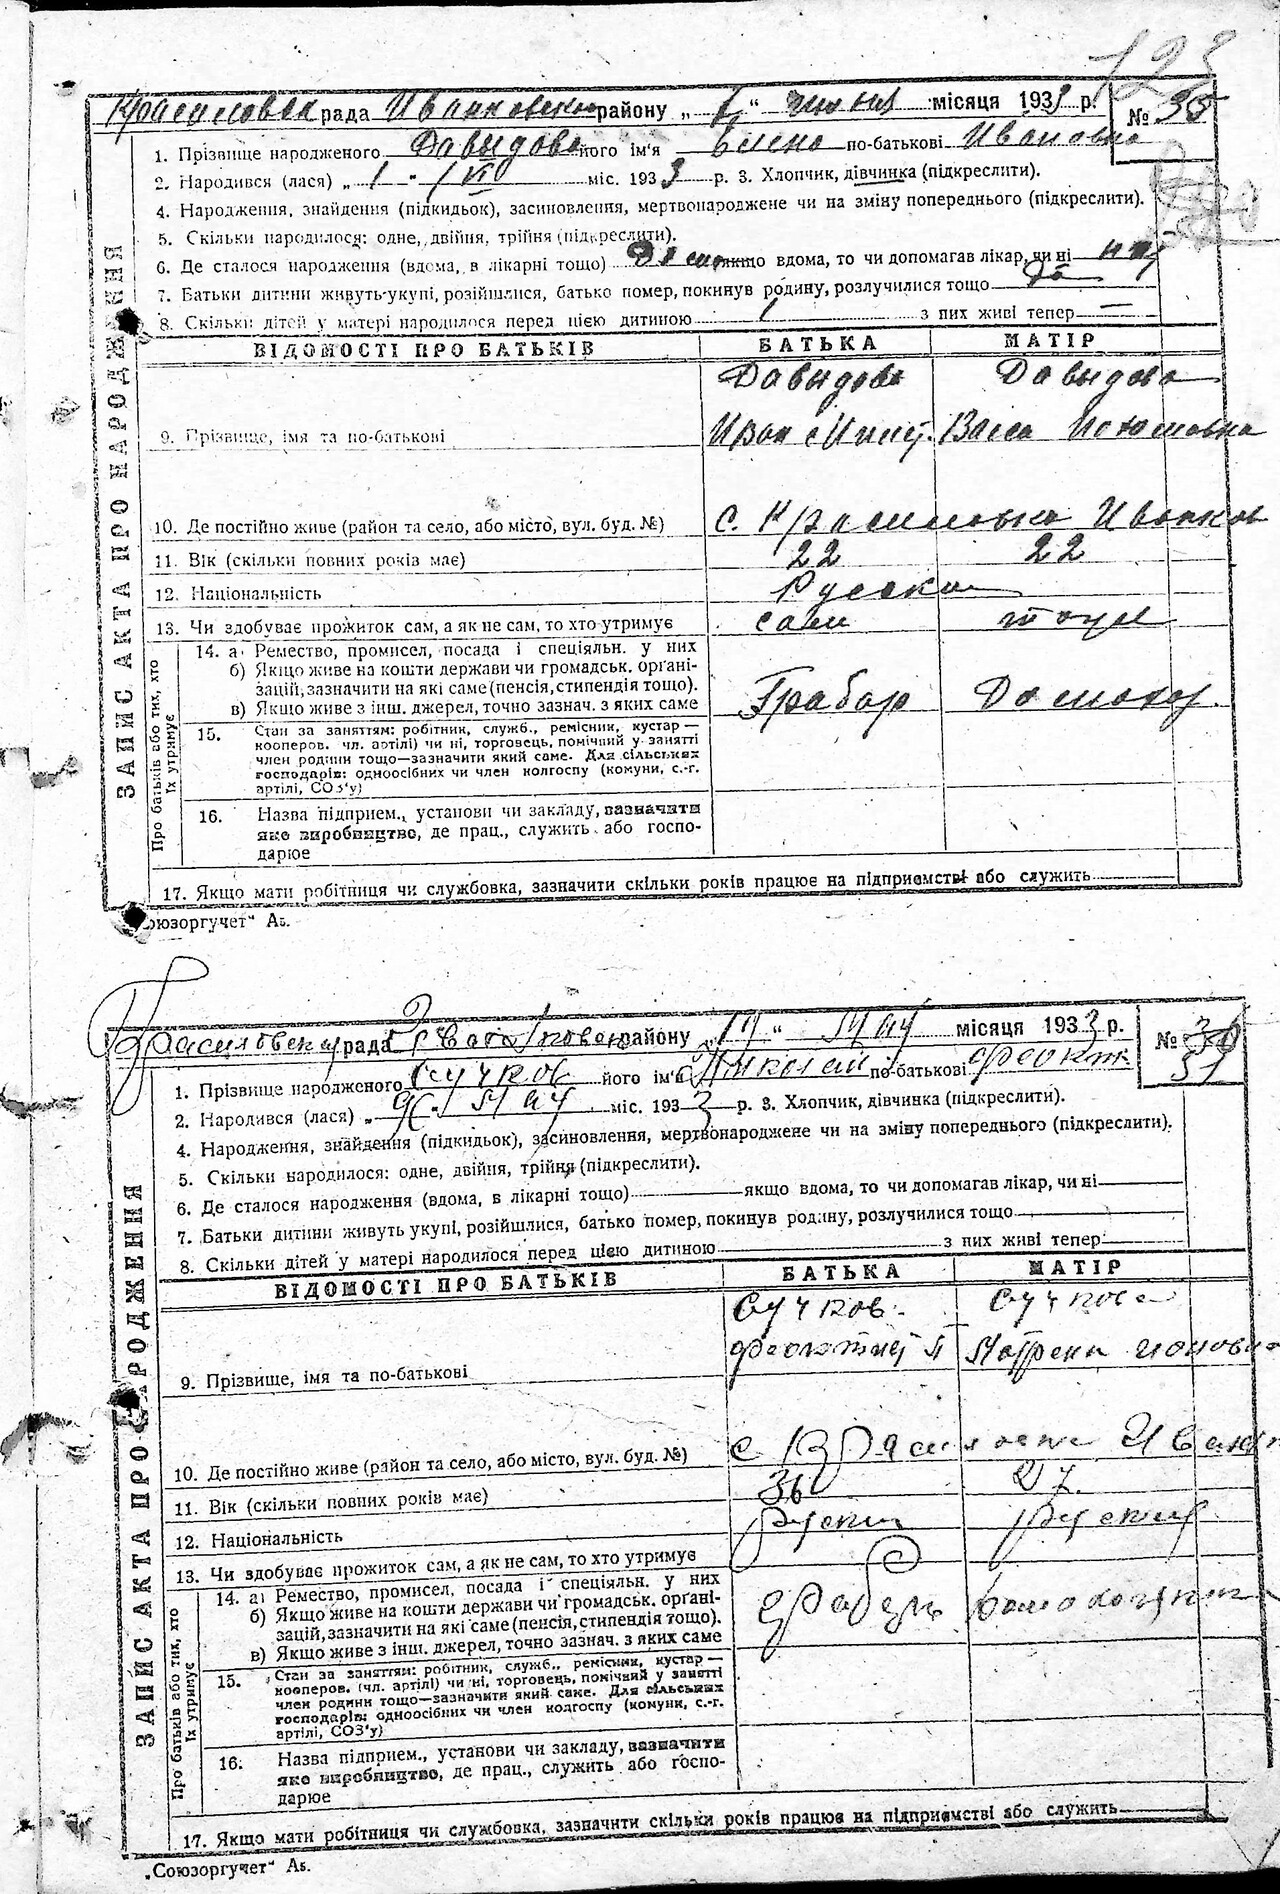 123
Красиловск рада Иванковском району „ 5 “ июня місяця 1933 р. № 35
1. Прізвище народженого Давыдова його ім'я Елена по-батькові Ивановна
2. Народився (лася) „ 1 “ VI міс. 1933 р. 3. Хлопчик, дівчинка (підкреслити).
4. Народження, знайдення (підкидьок), засиновлення, мертвонароджене чи на зміну попереднього (підкреслити).
5. Скільки народилося: одне, двійня, трійня (підкреслити).
6. Де сталося народження (вдома, в лікарні тощо) якщо вдома, то чи допомагав лікар, чи ні
7. Батьки дитини живуть укупі, розійшлися, батько помер, покинув родину, розлучилися тощо да
8. Скільки дітей у матері народилося перед цією дитиною 1 з них живі тепер —
ЗАПИС АКТА ПРО НАРОДЖЕННЯ
ВІДОМОСТІ ПРО БАТЬКІВ БАТЬКА МАТІР
Давыдов Давыдова
9. Прізвище, імя та по-батькові Иван Васа
10. Де постійно живе (район та село, або місто, вул. буд. №) с. Красиловка Иванков
11. Вік (скільки повних років має) 22 22
12. Національність Русская
13. Чи здобуває прожиток сам, а як не сам, то хто утримує сам тоже
Про батьків або тих, хто їх утримує
14. а) Ремество, промисел, посада і спеціяльн. у них
б) Якщо живе на кошти держави чи громадськ. органі-
зацій, зазначити на які саме (пенсія, стипендія тощо).
в) Якщо живе з інш. джерел, точно зазнач. з яких саме Грабар Домохоз.
15. Стан за заняттям: робітник, служб., ремісник, кустар —
кооперов. чл. артілі) чи ні, торговець, помічний у занятті
член родини тощо—зазначити який саме. Для сільських
господарів: одноосібних чи член колгоспу (комуни, с.-г.
артілі, СОЗ'у)
16. Назва підприєм., установи чи закладу, зазначити
яке виробництво, де прац., служить або госпо-
дарює
17. Якщо мати робітниця чи службовка, зазначити скільки років працює на підприємстві або служить
„Союзоргучет“ Аб.
Красиловский рада району „ 14 “ мау місяця 1933 р. № 37
1. Прізвище народженого Сучков його ім'я Николай по-батькові Феокт
2. Народився (лася) „ мау міс. 1933 р. 3. Хлопчик, дівчинка (підкреслити).
4. Народження, знайдення (підкидьок), засиновлення, мертвонароджене чи на зміну попереднього (підкреслити).
5. Скільки народилося: одне, двійня, трійня (підкреслити).
6. Де сталося народження (вдома, в лікарні тощо) якщо вдома, то чи допомагав лікар, чи ні
7. Батьки дитини живуть укупі, розійшлися, батько помер, покинув родину, розлучилися тощо
8. Скільки дітей у матері народилося перед цією дитиною з них живі тепер
ЗАПИС АКТА ПРО НАРОДЖЕННЯ
ВІДОМОСТІ ПРО БАТЬКІВ БАТЬКА МАТІР
Сучков Сучкова
Феоктист Матрена Ионовна
9. Прізвище, імя та по-батькові
10. Де постійно живе (район та село, або місто, вул. буд. №) с Красиловки Иванк
11. Вік (скільки повних років має) 36 27.
12. Національність руский руский
13. Чи здобуває прожиток сам, а як не сам, то хто утримує
Про батьків або тих, хто їх утримує
14. а) Ремество, промисел, посада і спеціяльн. у них
б) Якщо живе на кошти держави чи громадськ. органі-
зацій, зазначити на які саме (пенсія, стипендія тощо).
в) Якщо живе з інш. джерел, точно зазнач. з яких саме
15. Стан за заняттям: робітник, служб., ремісник, кустар —
кооперов. (чл. артілі) чи ні, торговець, помічний у занятті
член родини тощо—зазначити який саме. Для сільських
господарів: одноосібних чи член колгоспу (комуни, с.-г.
артілі, СОЗ'у)
16. Назва підприєм., установи чи закладу, зазначити
яке виробництво, де прац., служить або госпо-
дарює
17. Якщо мати робітниця чи службовка, зазначити скільки років працює на підприємстві або служить
„Союзоргучет“ Аб.